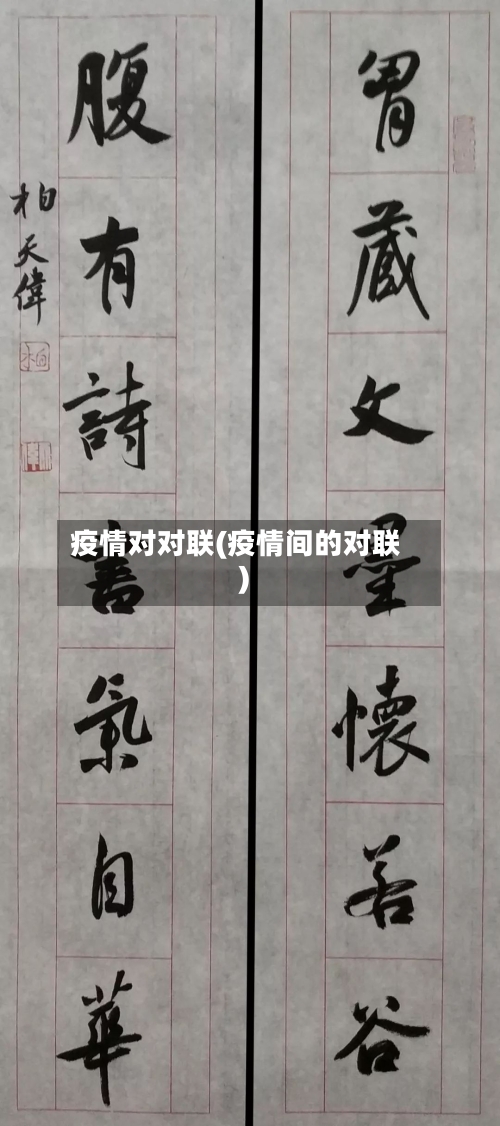 胷藏文墨懷若谷
腹有詩書氣自華
柏天偉
柏
疫情对对联(疫情间的对联
)